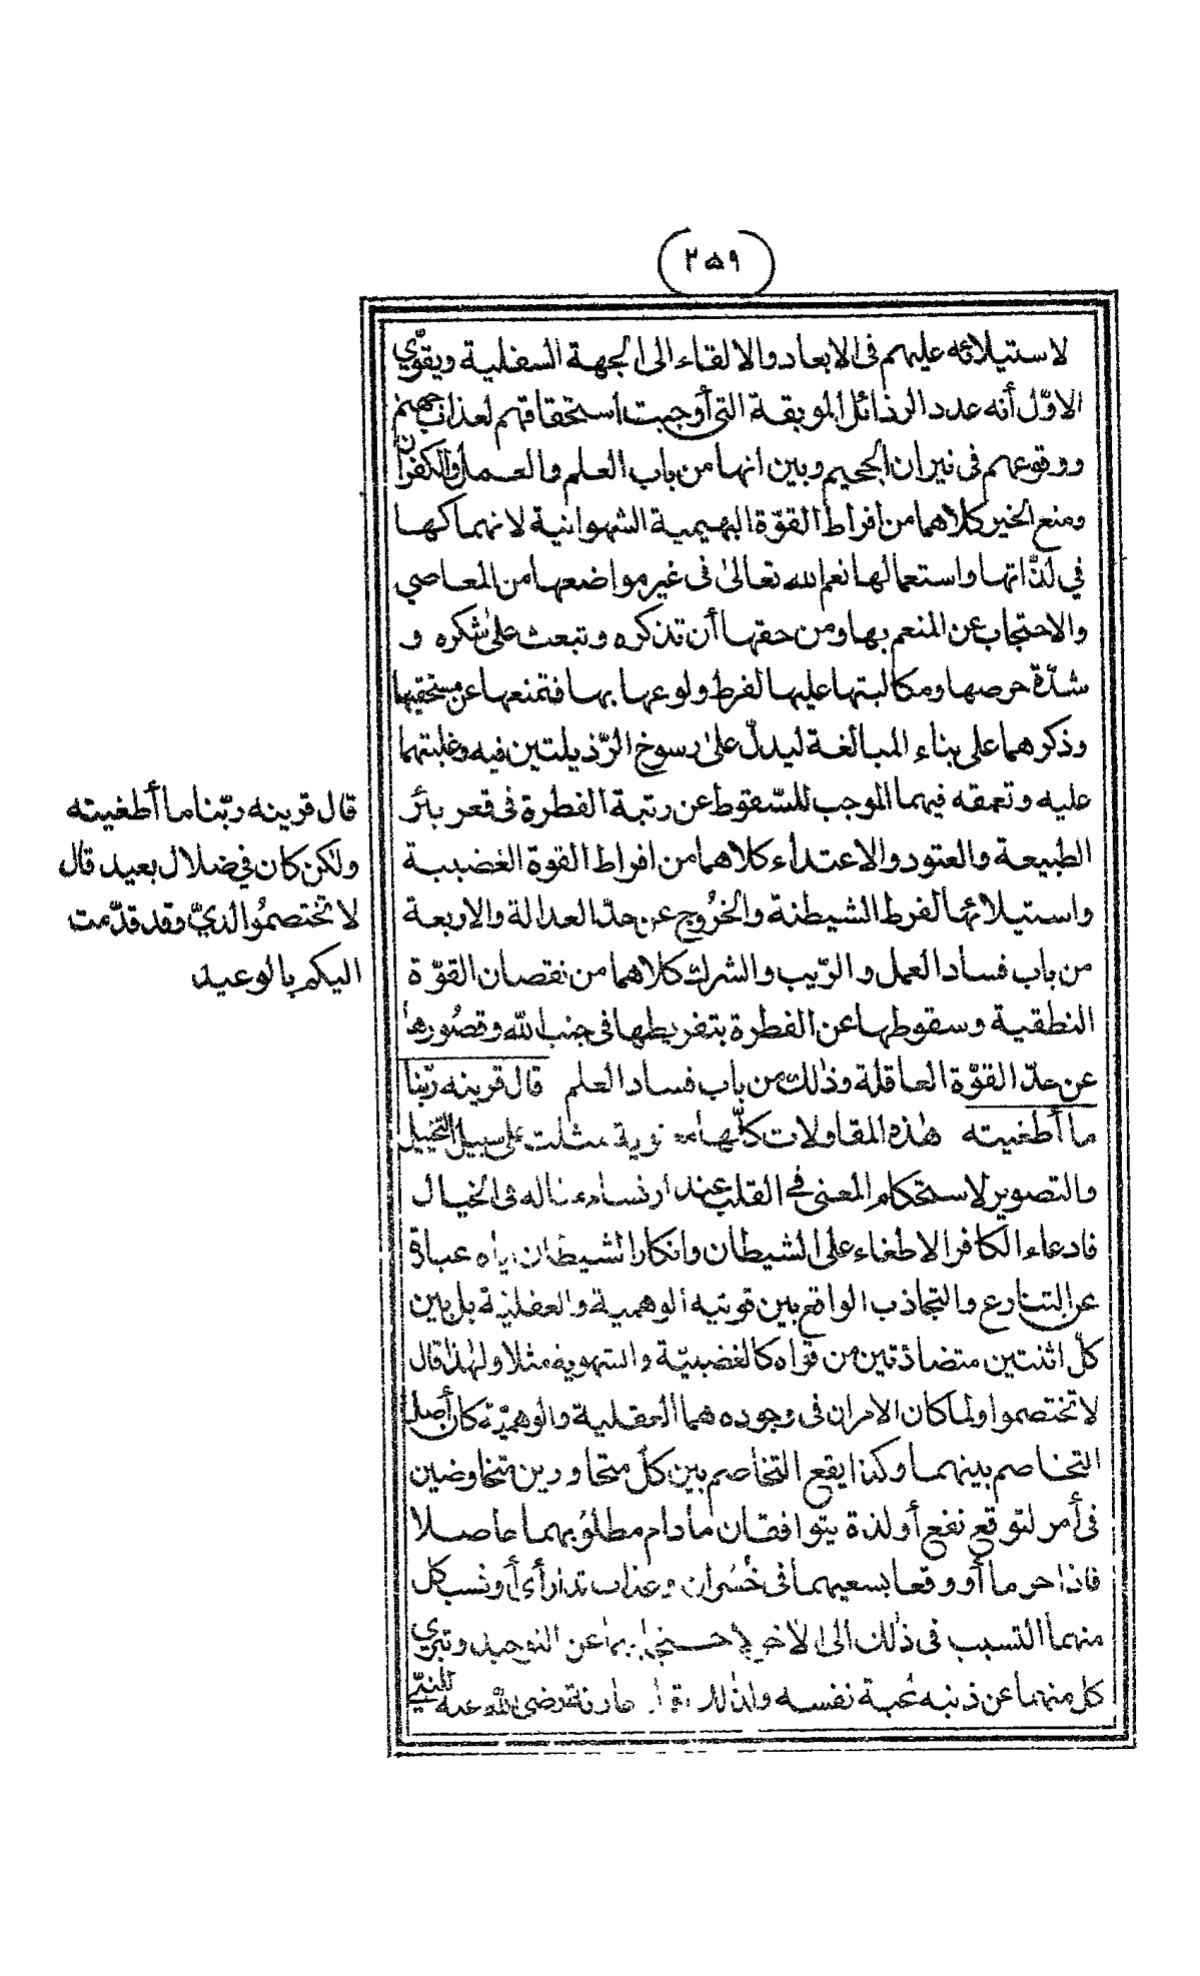 (٢٥٩)
لاستيلائه عليهم فى الابعاد والالقاء الى الجهة السفلية ويقوّي
الاوّل أنه عدد الرذائل الموبقة التى أوجبت استحقاقهم لعذاب جهنم
ووقوعهم فى نيران الجحيم وبين انها من باب العلم والعمل والكفران
ومنع الخير كلاهما من افراط القوّة البهيمية الشهوانية لانهماكها
في لذّاتها واستعمالها نعم الله تعالىٰ فى غير مواضعها من المعاصي
والاحتجاب عن المنعم بها ومن حقها أن تذكره وتبعث علىٰ شكره و
شدّة حرصها ومكالبتها عليها لفرط ولوعها بها فتمنعها عن مستحقيها
وذكرهما على بناء المبالغة ليدلّ علىٰ رسوخ الرّذيلتين فيه وغلبتهما
عليه وتعمقه فيهما الموجب للسّقوط عن رتبة الفطرة فى قعر بئر
الطبيعة والعتود والاعتداء كلاهما من افراط القوة الغضبية
واستيلائها لفرط الشيطنة والخرُوج عن حدّ العدالة والاربعة
من باب فساد العمل والرّيب والشرك كلاهما من نقصان القوّة
النطقية وسقوطها عن الفطرة بتفريطها فى جنب الله وقصُورها
عن حدّ القوّة العاقلة وذٰلك من باب فساد العلم قال قرينه ربّنا
ما أطغيته هٰذه المقاولات كلّها معنوية مثلت على سبيل التخييل
والتصوير لاستحكام المعنى في القلب عند ارتسام مثاله فى الخيال
فادعاء الكافر الاطغاء على الشيطان وانكار الشيطان اياه عبارة
عن التنازع والتجاذب الواقع بين قوتيه الوهمية والعقلية بل بين
كل اثنتين متضادّتين من قواه كالغضبيّة والشهوية مثلا ولهٰذا قال
لا تختصموا ولما كان الامران فى وجوده هما العقلية والوهميّة كان أصل
التخاصم بينهما وكذا يقع التخاصم بين كل متحاورين متخاوضين
فى أمر لتوقع نفع أو لذة يتوافقان مادام مطلوبهما حاصلا
فاذا حرما أو وقعا بسعيهما فى خُسران وعذاب تدارأى أو نسب كل
منهما التسبب فى ذٰلك الىٰ الآخر لاحتجابهما عن التوحيد وتبري
كل منهما عن ذنبه لمحبة نفسه ولذلك حارثة رضى الله عنه للنبيّ
قال قرينه ربّنا ما أطغيته
ولكن كان في ضلال بعيد قال
لا تختصمُوا لديّ وقد قدّمت
اليكم بالوعيد